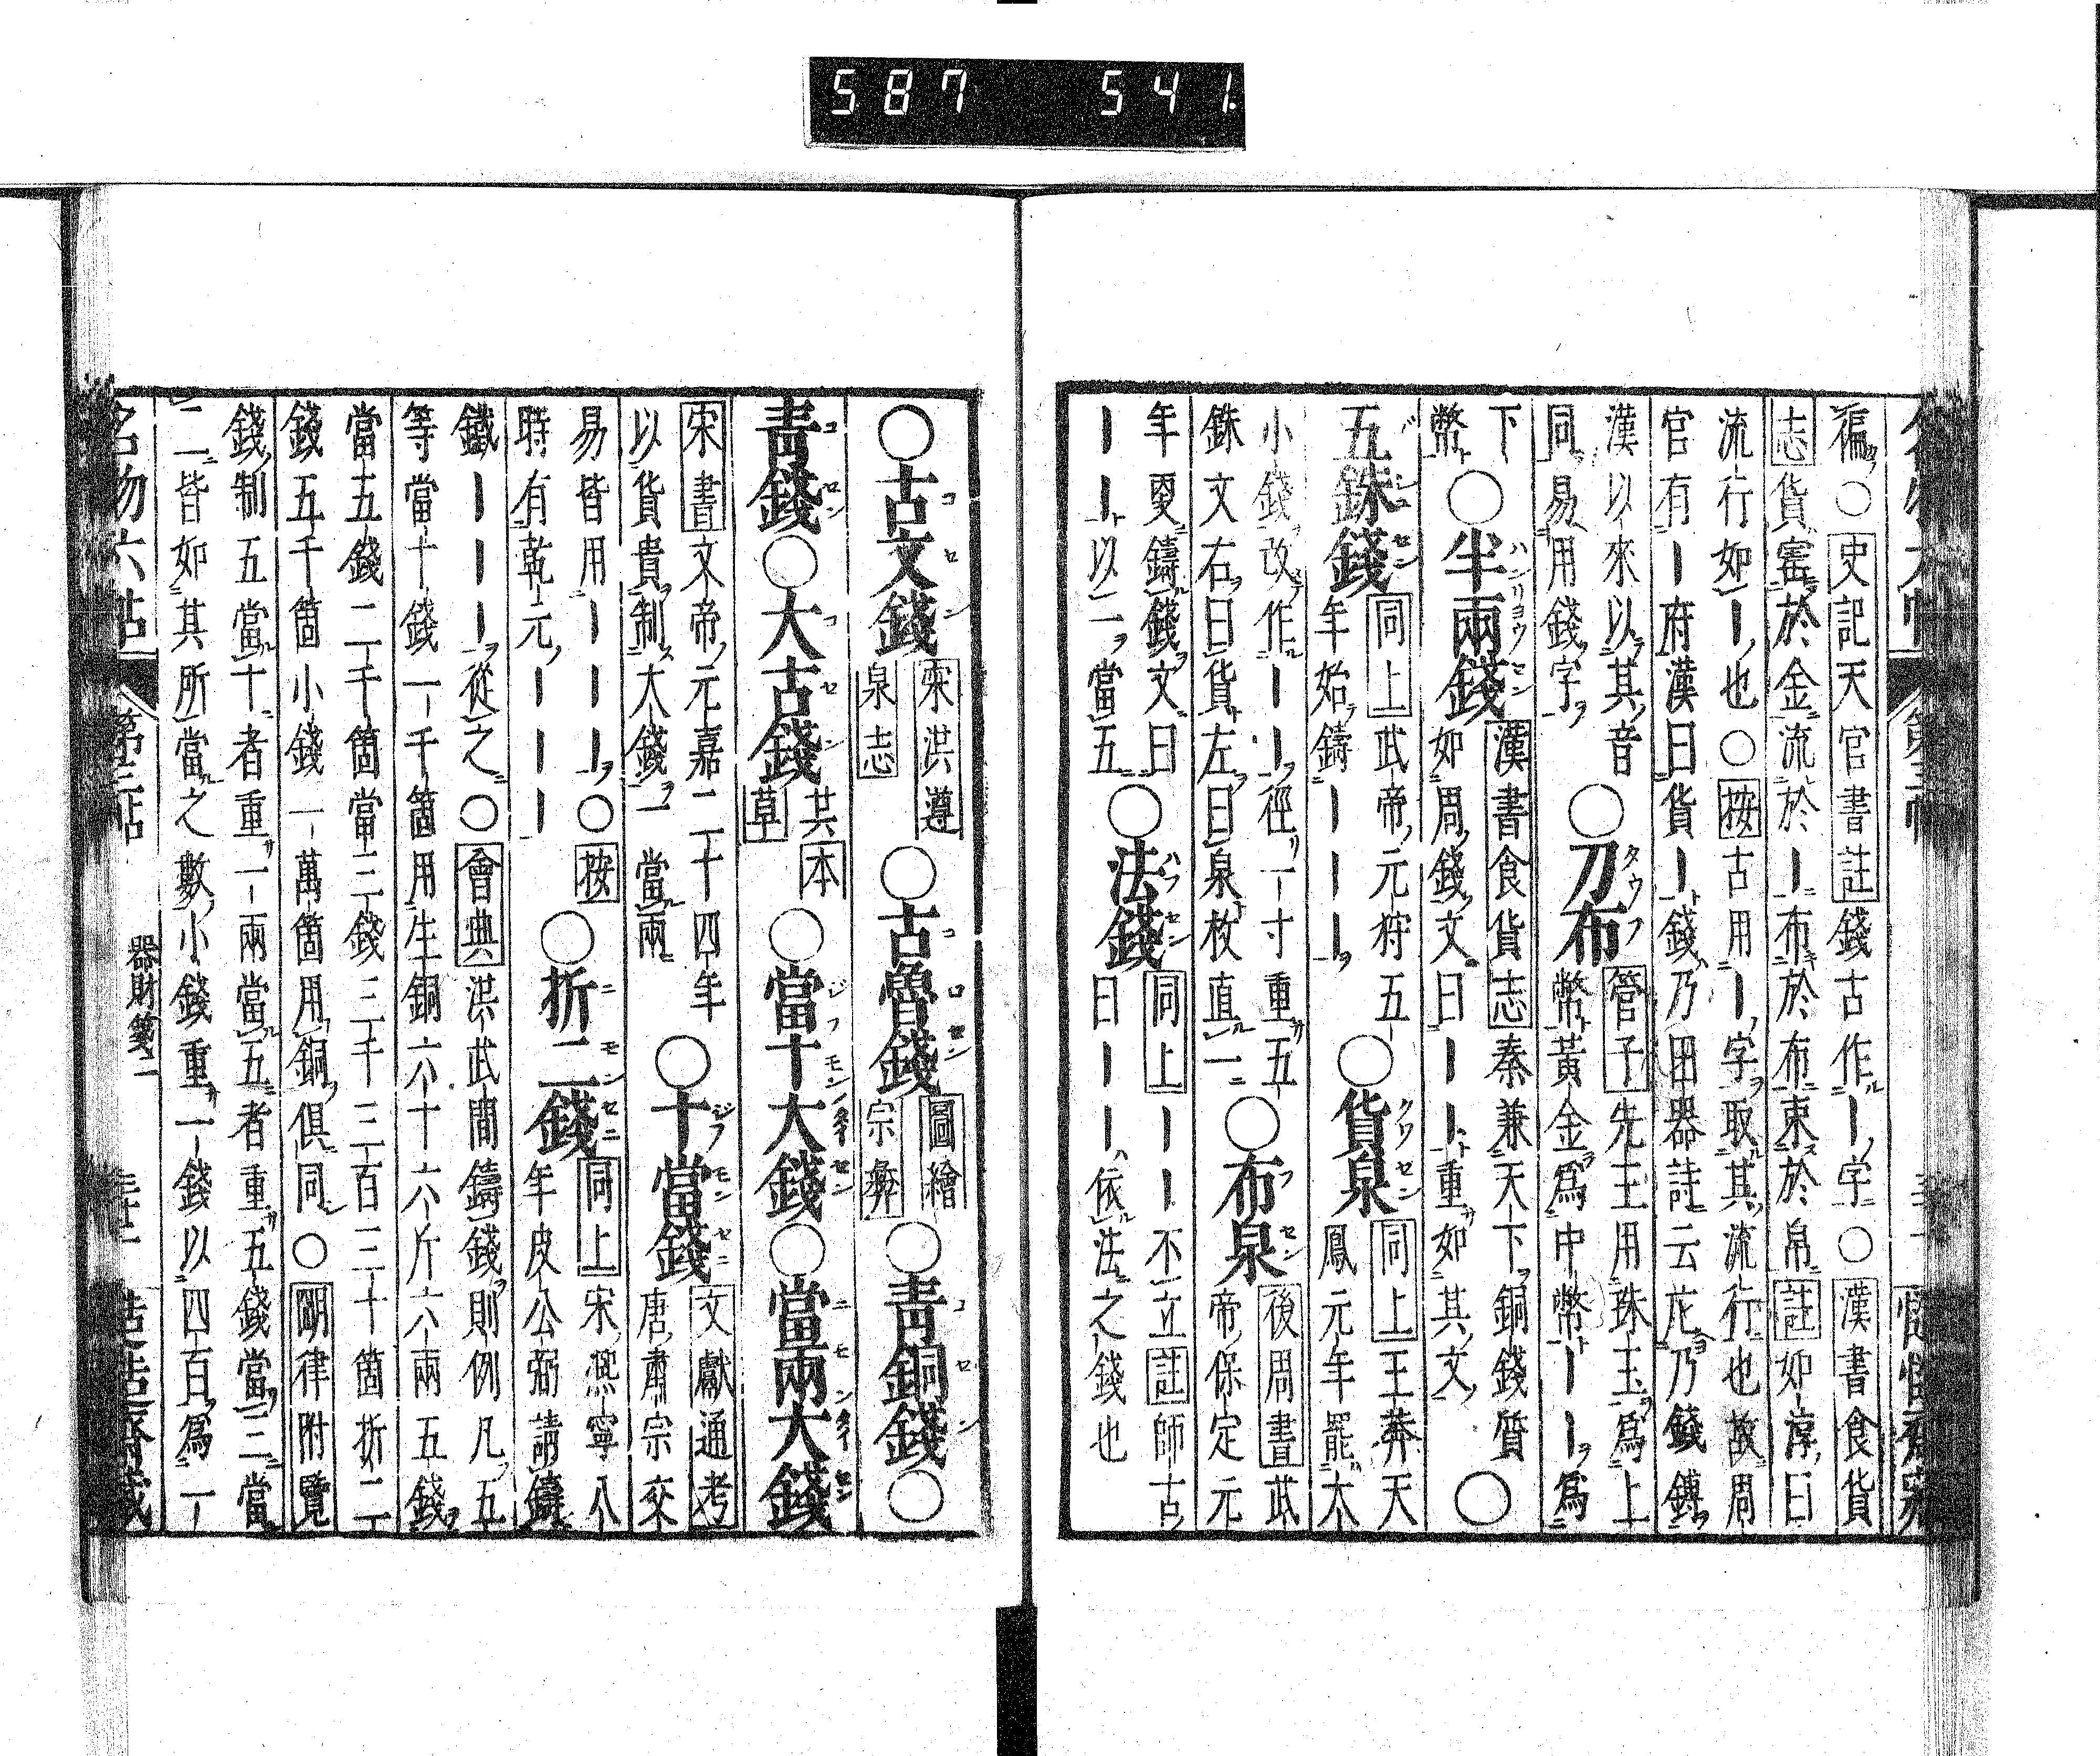 徧○史記天官書註錢古作｜字○漢書食貨
志貨窑於金流於｜布於布束於帛註如淳曰
流行如｜也○按古用｜字取其流行也故周
官有｜府漢曰貨｜錢乃田器詩云庀乃錢鎛
漢以來以其音
同易用錢字
○刀布
管子先王用珠玉爲上
幣黃金爲中幣｜｜爲
下
幣
○半兩錢
漢書食貨志秦兼天下銅錢質
如周錢文曰｜｜重如其文
○
五銖錢
同上武帝元狩五
年始鑄｜｜｜
○貨泉
同上王莽天
鳳元年罷大
小錢改作｜｜徑一寸重五
銖文右曰貨左曰泉枚直一
○布泉
後周書武
帝保定元
年更鑄錢文曰
｜｜以一當五
○法錢
同上｜｜不立註師古
曰｜｜依法之錢也
○古文錢
宋洪遵
泉志
○古魯錢
圖繪
宗彝
○青銅錢○
青錢○大古錢
共本
草
○當十大錢○當兩大錢
宋書文帝元嘉二十四年
以貨貴制大錢一當兩
○十當錢
文獻通考
唐肅宗交
易皆用｜｜｜○按
時有乾元｜｜｜
○折二錢
同上宋熙寧八
年皮公弼請鑄
鐵｜｜｜從之○會典洪武間鑄錢則例凡五
等當十錢一千箇用生銅六十六斤六兩五錢
當五錢二千箇當三錢三千三百三十箇折二
錢五千箇小錢一萬箇用銅俱同○明律附覽
錢制五當十者重一兩當五者重五錢當三當
二皆如其所當之數小錢重一錢以四百爲一
名物六帖 第三帖 器財箋二
587 541